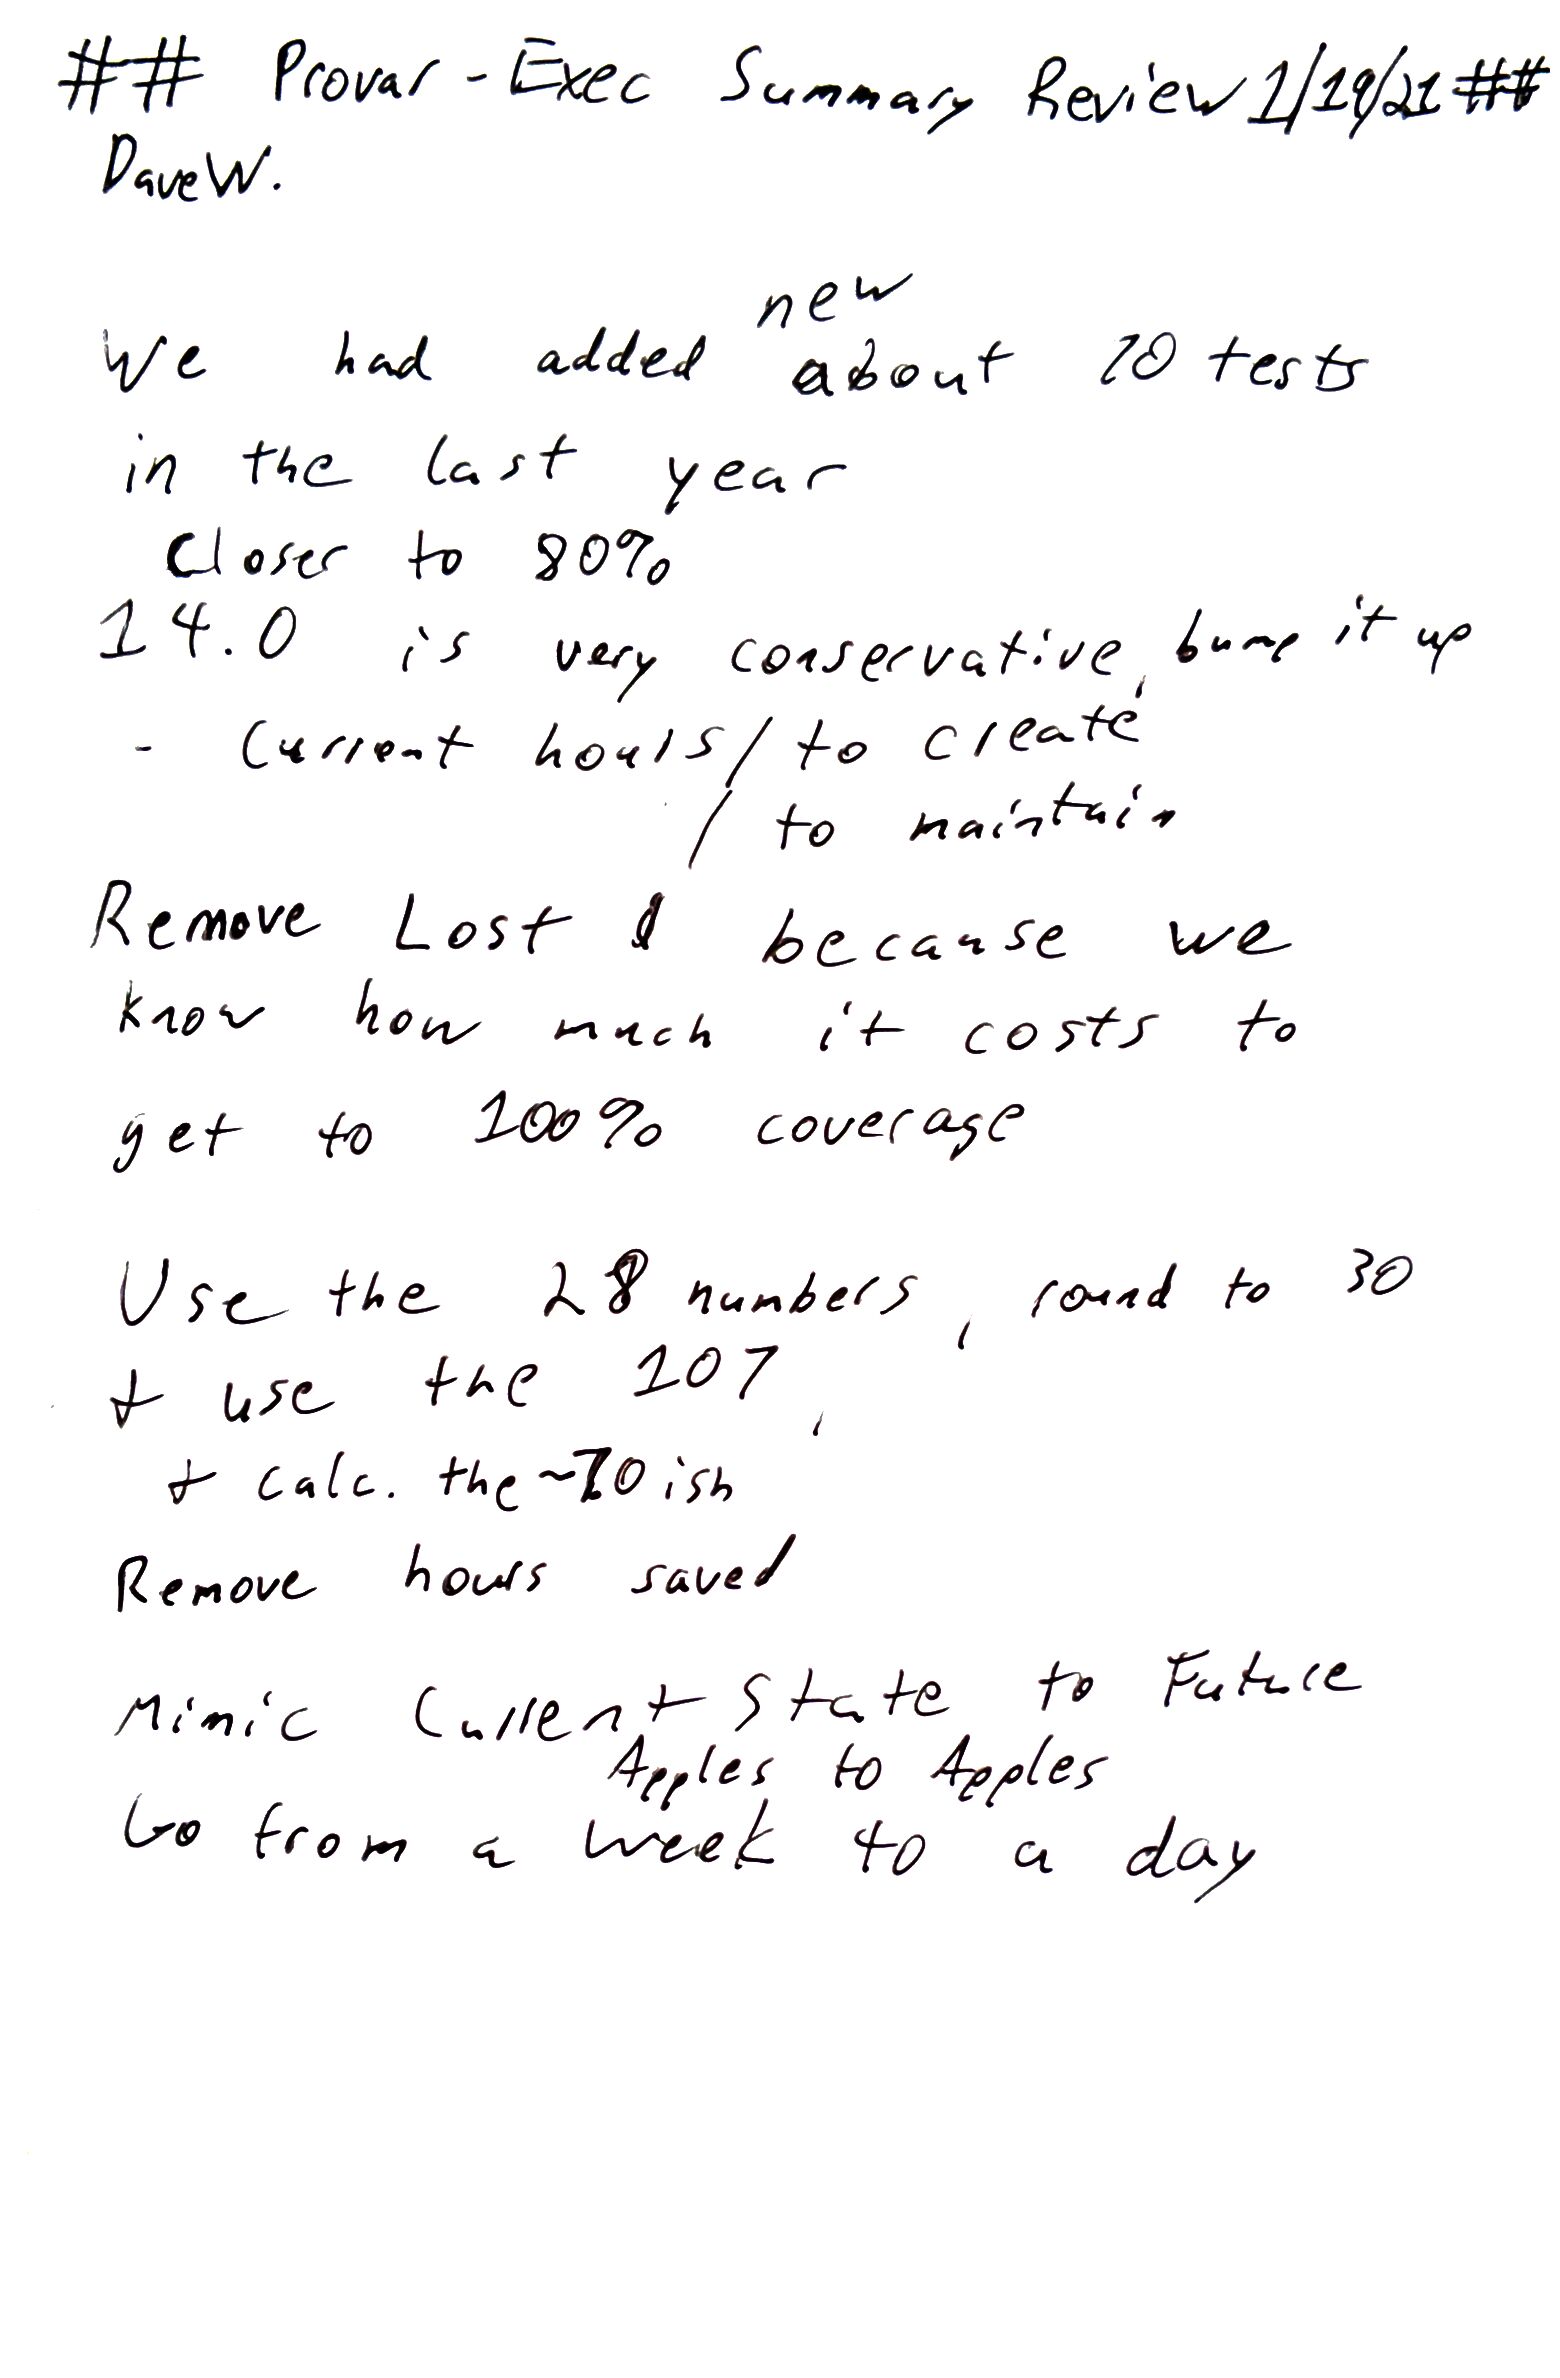 ## Provar - Exec Summary Review 1/19/21 ##
Dave W.
new
We had added about 10 tests
in the last year
Closer to 80%
14.0 is very conservative, bump it up
- Current hours / to create
/ to maintain
Remove Lost because we
know how much it costs to
get to 100% coverage
Use the 28 numbers, round to 30
+ use the 107,
+ calc. the ~70 ish
Remove hours saved
Mimic Current State to Future
Apples to Apples
Go from a week to a day